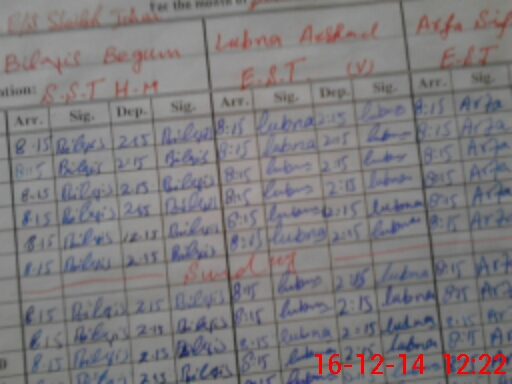 For the month of
Bilqis Begum Lubna Arshad Arfa
S.S.T H-M E.S.T (V) E.S.T
Arr. Sig. Dep. Sig. Arr. Sig. Dep. Sig. Arr. Sig.
8:15 Bilqis 2:15 Bilqis 8:15 Lubna 2:15 Lubna 8:15 Arfa
8:15 Bilqis 2:15 Bilqis 8:15 Lubna 2:15 Lubna 8:15 Arfa
8:15 Bilqis 2:15 Bilqis 8:15 Lubna 2:15 Lubna 8:15 Arfa
8:15 Bilqis Bilqis 8:15 Lubna 2:15 Lubna 8:15 Arfa
8:15 Bilqis 12:15 Bilqis 8:15 Lubna 12:15 Lubna 8:15 Arfa
8:15 Bilqis Bilqis 8:15 Lubna 2:15 Lubna 8:15 Arfa
Sunday
8:15 Bilqis 2:15 Bilqis 8:15 Lubna Lubna 8:15
8:15 Bilqis 2:15 Bilqis 8:15 Lubna 2:15 Lubna 8:15
8:15 Bilqis 2:15 Bilqis 8:15 Lubna 2:15 Lubna 8:15
8:15 Bilqis Bilqis 8:15 Lubna
16-12-14 12:22